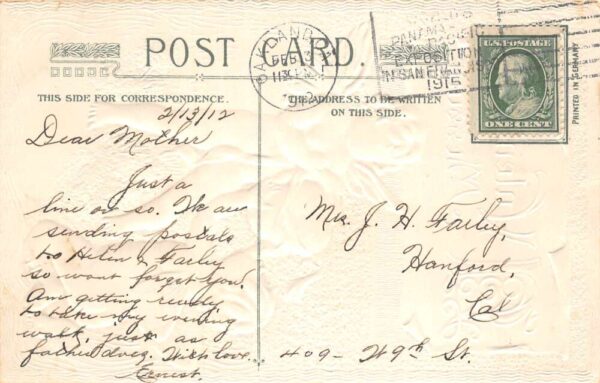 POST CARD.
OAKLAND
FEB
1912
WORLD'S
PANAMA PACIFIC
EXPOSITION
IN SAN FRANCISCO
1915
U.S. POSTAGE
ONE CENT
PRINTED IN GERMANY
THIS SIDE FOR CORRESPONDENCE.
THE ADDRESS TO BE WRITTEN
ON THIS SIDE.
2/13/12
Dear Mother
Just a
line or so. We are
sending postals
to Helen & Farley
so wont forget you.
Am getting ready
to take my evening
walk, just as
father does. With love.
Ernest.
Mrs. J. H. Farley,
Hanford,
Cal
409- W 9th St.